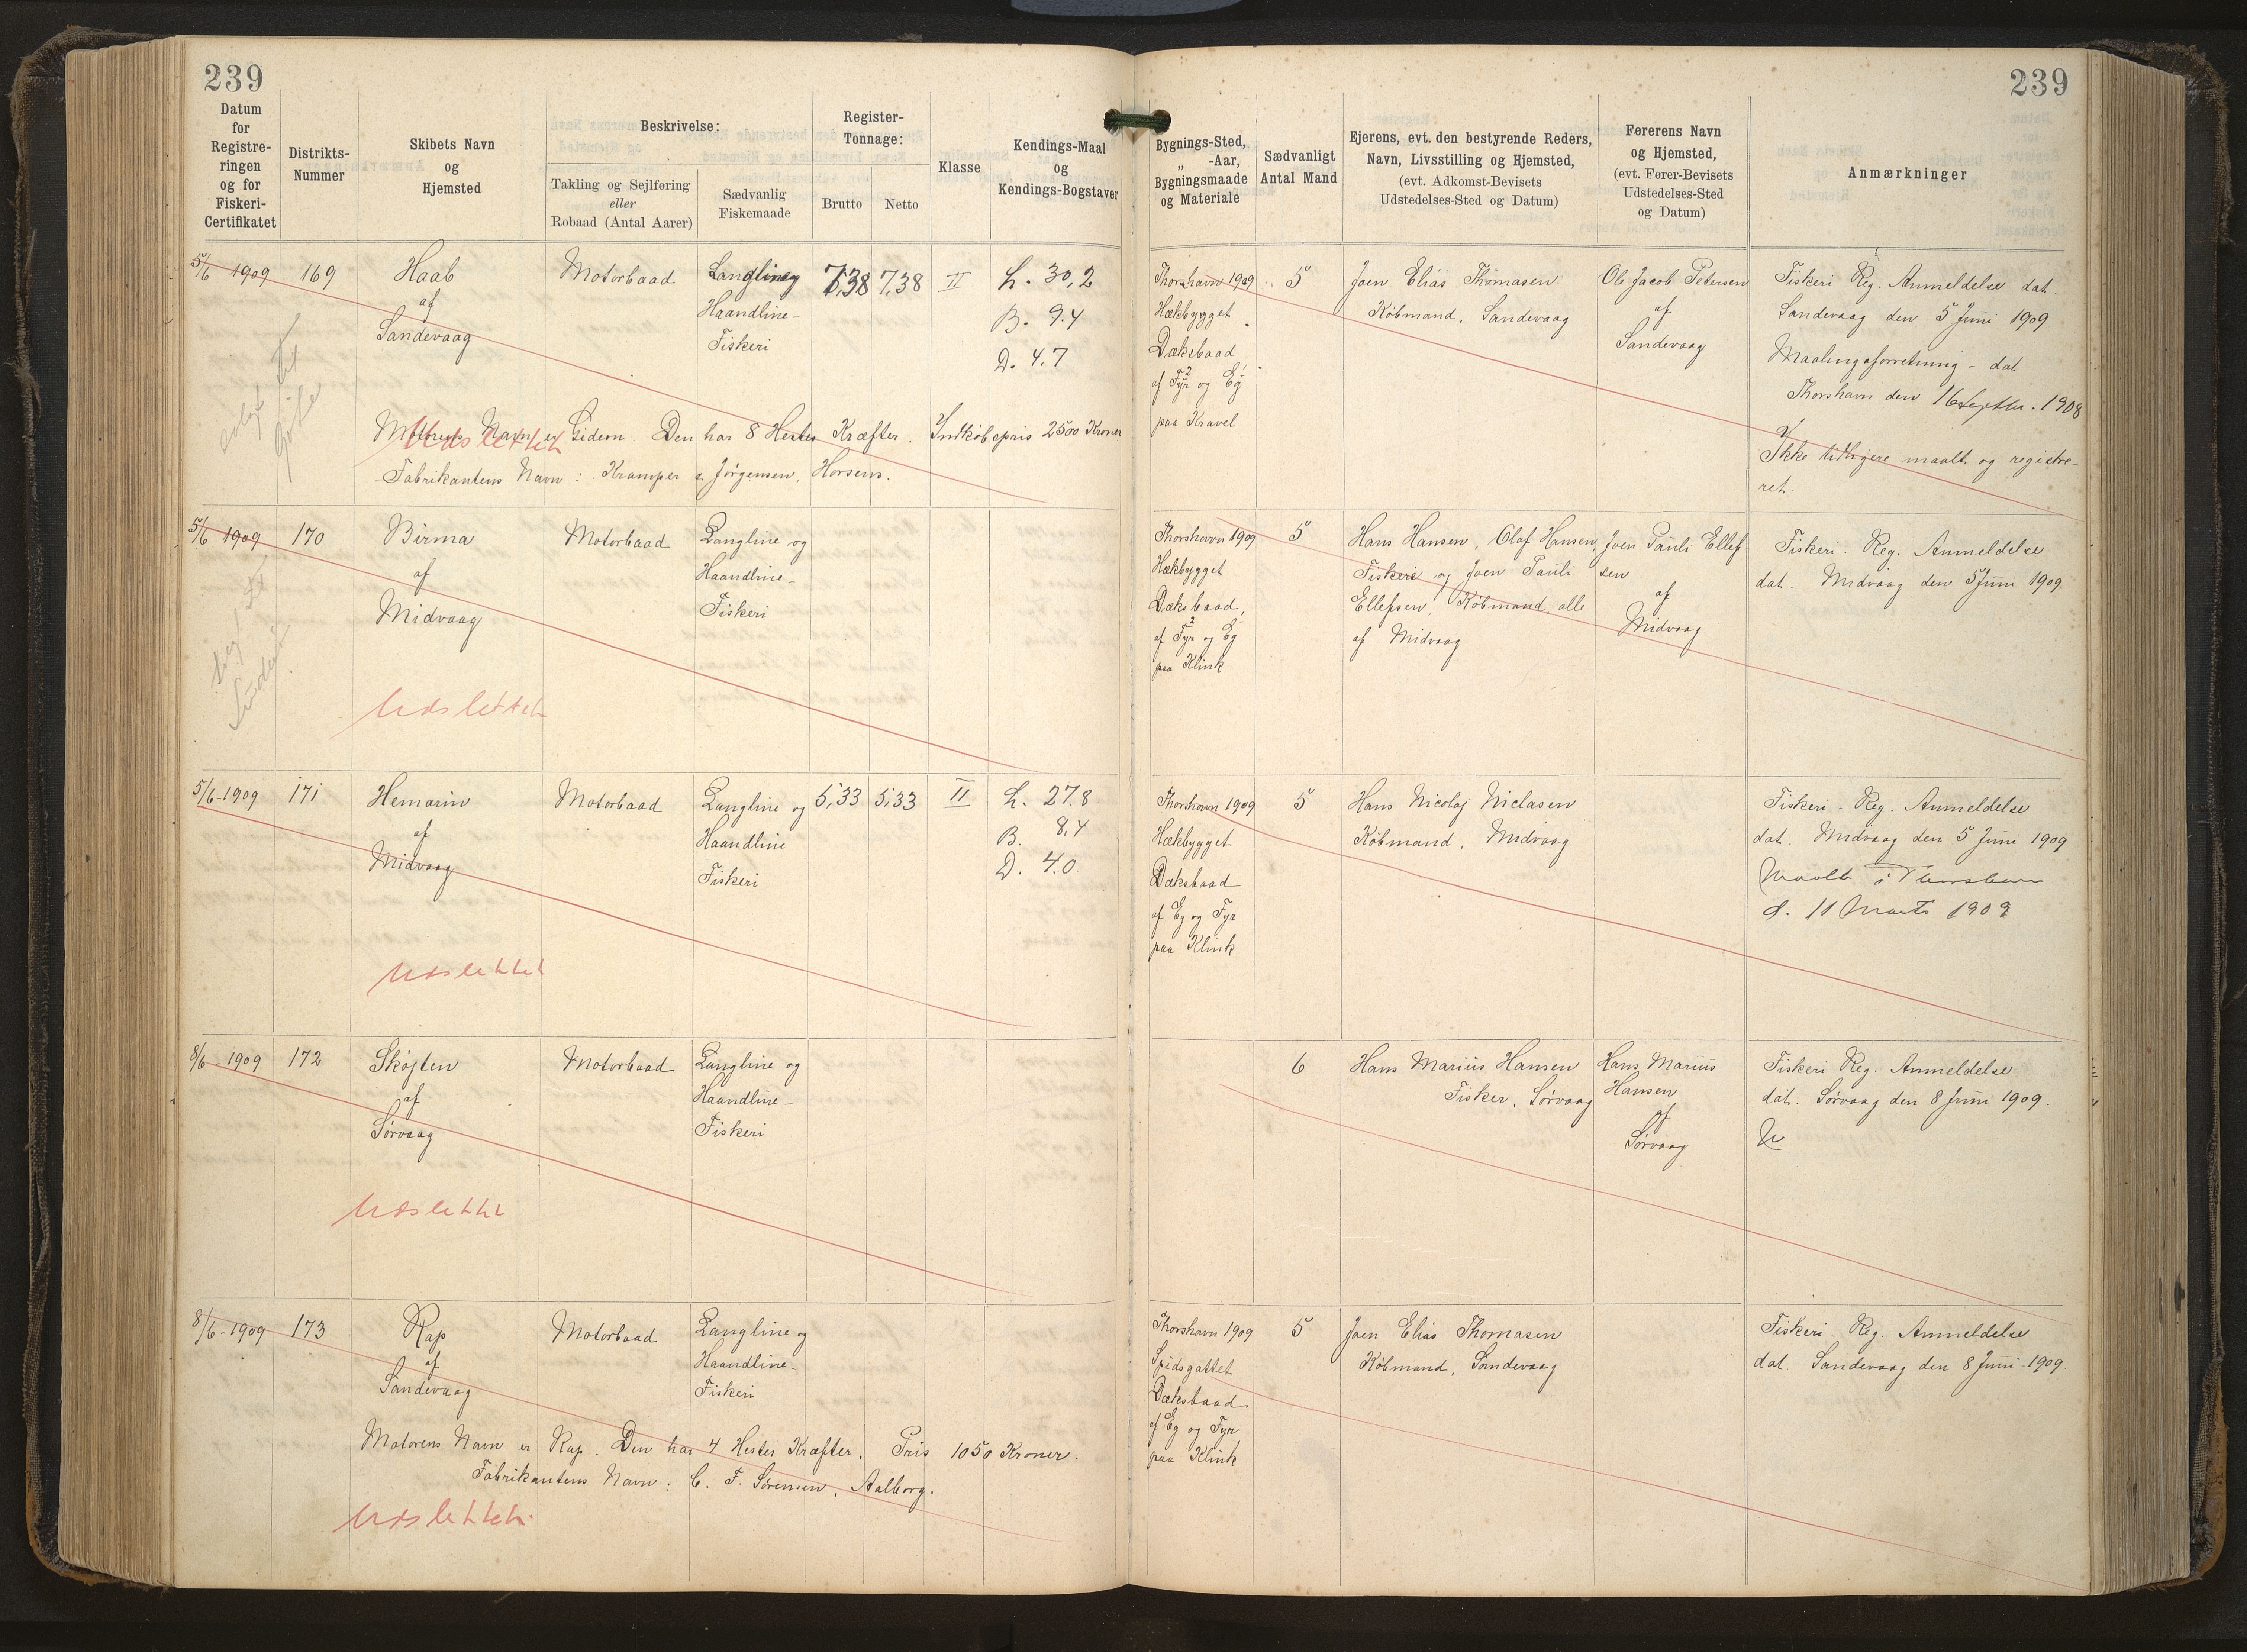 239
239
Datum
for
Registre-
ringen
og for
Fiskeri-
Certifikatet
Distrikts-
Nummer
Skibets Navn
og
Hjemsted
Beskrivelse:
Takling og Sejlføring
eller
Robaad (Antal Aarer)
Sædvanlig
Fiskemaade
Register-
Tonnage:
Brutto
Netto
Klasse
Kendings-Maal
og
Kendings-Bogstaver
Bygnings-Sted,
„ -Aar,
Bygningsmaade
og Materiale
Sædvanligt
Antal Mand
Ejerens, evt. den bestyrende Reders,
Navn, Livsstilling og Hjemsted,
(evt. Adkomst-Bevisets
Udstedelses-Sted og Datum)
Førerens Navn
og Hjemsted,
(evt. Fører-Bevisets
Udstedelses-Sted
og Datum)
Anmærkninger
5/6 1909
169
Haab
af
Sandevaag
Motorbaad
Langline og
Haandline-
Fiskeri
7,38
7,38
II
L. 30,2
B. 9.4
D. 4.7
Motorens Navn er Gideon. Den har 8 Hestes Kræfter. Indkøbspris 2500 Kroner
Fabrikantens Navn: Kramper & Jørgensen, Horsens.
Udslettet
solgt til
Gøte
Thorshavn 1909
Hækbygget
Dæksbaad
af Fyr og Eg
paa Kravel
5
Joen Elias Thomasen
Købmand, Sandevaag
Ole Jacob Petersen
af
Sandevaag
Fiskeri Reg. Anmeldelse dat.
Sandevaag den 5 Juni 1909
Maalingsforretning - dat
Thorshavn den 16 Septbr. 1908
Ikke tidligere maalt og registre-
ret.
5/6 1909
170
Birma
af
Midvaag
Motorbaad
Langline og
Haandline-
Fiskeri
Udslettet
Thorshavn 1909
Hækbygget
Dæksbaad,
af Fyr og Eg
paa Klink
5
Hans Hansen, Olaf Hansen,
Fiskere og Joen Pauli
Ellefsen, Købmand, alle
af Midvaag
Joen Pauli Ellef-
sen
af
Midvaag
Fiskeri. Reg. Anmeldelse
dat. Midvaag den 5 Juni 1909
5/6-1909
171
Hemarin
af
Midvaag
Motorbaad
Langline og
Haandline
Fiskeri
5,33
5,33
II
L. 27.8
B. 8,4
D. 4.0
Udslettet
Thorshavn 1909
Hækbygget
Dæksbaad
af Eg og Fyr
paa Klink
5
Hans Nicolaj Niclasen
Købmand, Midvaag
Fiskeri - Reg. Anmeldelse
dat. Midvaag den 5 Juni 1909
Maalt i Thorshavn
d. 11 Marts 1909
8/6 - 1909
172
Skøjten
af
Sørvaag
Motorbaad
Langline og
Haandline-
Fiskeri
Udslettet
6
Hans Marius Hansen
Fisker, Sørvaag
Hans Marius
Hansen
af
Sørvaag
Fiskeri Reg. Anmeldelse
dat. Sørvaag den 8 Juni 1909.
8/6 - 1909
173
Rap
af
Sandevaag
Motorbaad
Langline og
Haandline-
Fiskeri
Motorens Navn er Rap. Den har 4 Hestes Kræfter. Pris 1050 Kroner.
Fabrikantens Navn: C. F. Sørensen, Aalborg.
Udslettet
Thorshavn 1909
Spidsgattet
Dæksbaad
af Eg og Fyr
paa Klink
5
Joen Elias Thomasen
Købmand, Sandevaag
Fiskeri - Reg. Anmeldelse
dat. Sandevaag den 8 Juni 1909